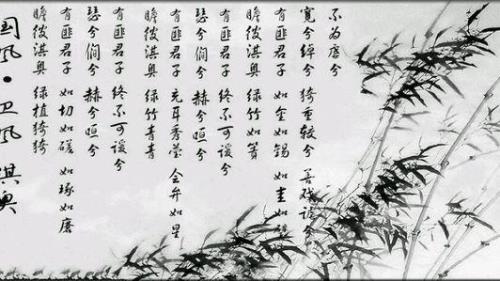 国风·卫风 淇奥
瞻彼淇奥 绿植猗猗
有匪君子 如切如磋 如琢如磨
瑟兮僩兮 赫兮咺兮
有匪君子 终不可谖兮
瞻彼淇奥 绿竹青青
有匪君子 充耳秀莹 会弁如星
瑟兮僩兮 赫兮咺兮
有匪君子 终不可谖兮
瞻彼淇奥 绿竹如箦
有匪君子 如金如锡 如圭如璧
宽兮绰兮 猗重较兮 善戏谑兮
不为虐兮